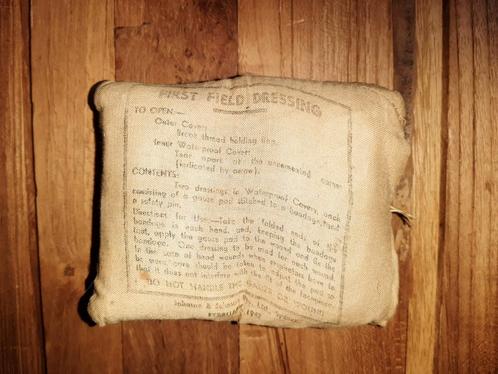 FIRST FIELD DRESSING
TO OPEN:—
Outer Cover:
Break thread holding flap.
Inner Waterproof Cover:
Tear apart at the uncemented corner
(indicated by arrow).
CONTENTS:
Two dressings in Waterproof Covers, each
consisting of a gauze pad stitched to a bandage, and
a safety pin.
Directions for Use—Take the folded ends of the
bandage in each hand, and, keeping the bandage
taut, apply the gauze pad to the wound and fix the
bandage. One dressing to be used for each wound.
In the case of head wounds when respirators have to
be worn care should be taken to adjust the pad so
that it does not interfere with the fit of the facepiece.
DO NOT HANDLE THE GAUZE OR WOUND
Johnson & Johnson Ltd., Sydney
FEBRUARY,